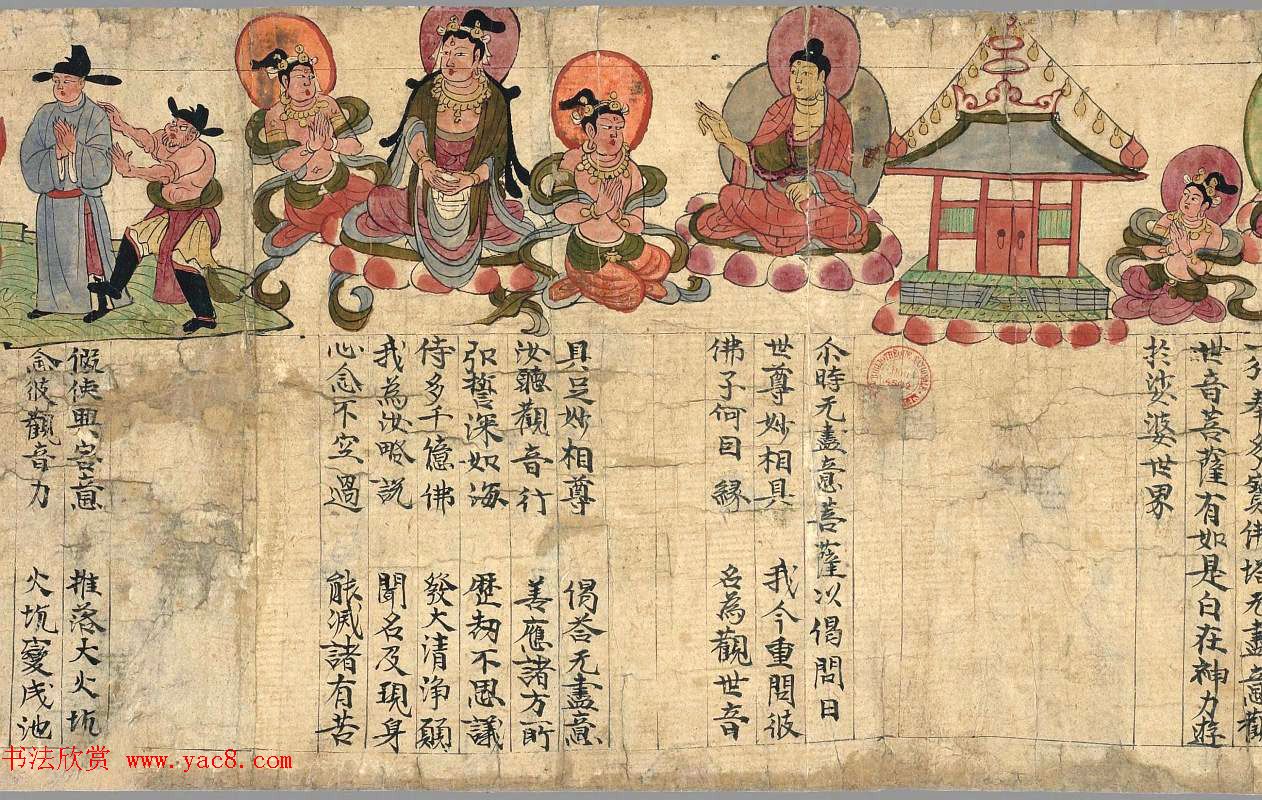 一分奉多寶佛塔无盡意觀
世音菩薩有如是自在神力遊
於娑婆世界
尒時无盡意菩薩以偈問曰
世尊妙相具 我今重問彼
佛子何因緣 名為觀世音
具足妙相尊 偈荅无盡意
汝聽觀音行 善應諸方所
弘誓深如海 歷劫不思議
侍多千億佛 發大清淨願
我為汝略說 聞名及現身
心念不空過 能滅諸有苦
假使興害意 推落大火坑
念彼觀音力 火坑變成池
书法欣赏 www.yac8.com